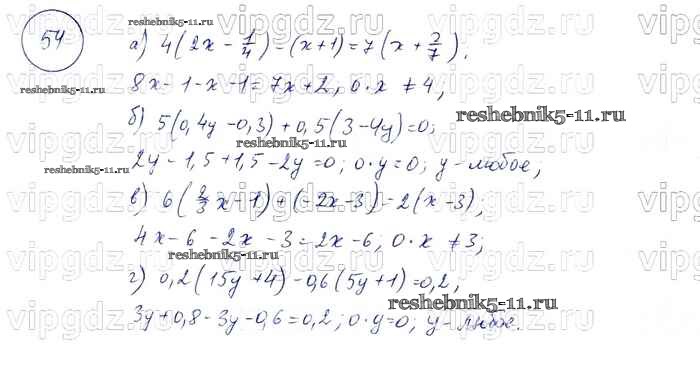 54
а) 4(2x - 1/4) - (x+1) = 7(x + 2/7).
8x - 1 - x - 1 = 7x + 2, 0·x ≠ 4,
б) 5(0,4y - 0,3) + 0,5(3 - 4y) = 0;
2y - 1,5 + 1,5 - 2y = 0; 0·y = 0; y - любое;
в) 6(2/3x - 1) + (-2x - 3) = 2(x - 3);
4x - 6 - 2x - 3 = 2x - 6; 0·x ≠ 3;
г) 0,2(15y + 4) - 0,6(5y + 1) = 0,2,
3y + 0,8 - 3y - 0,6 = 0,2; 0·y = 0; y - любое.
reshebnik5-11.ru
reshebnik5-11.ru
reshebnik5-11.ru
reshebnik5-11.ru
reshebnik5-11.ru
reshebnik5-11.ru
vipgdz.ru
vipgdz.ru
vipgdz.ru